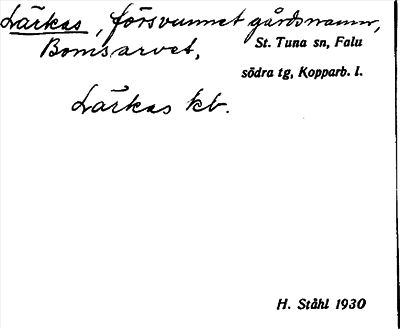 Lärkas, försvunnet gårdsnamn,
Bomsarvet, St. Tuna sn, Falu
södra tg, Kopparb. l.
Lärkas kb.
H. Ståhl 1930